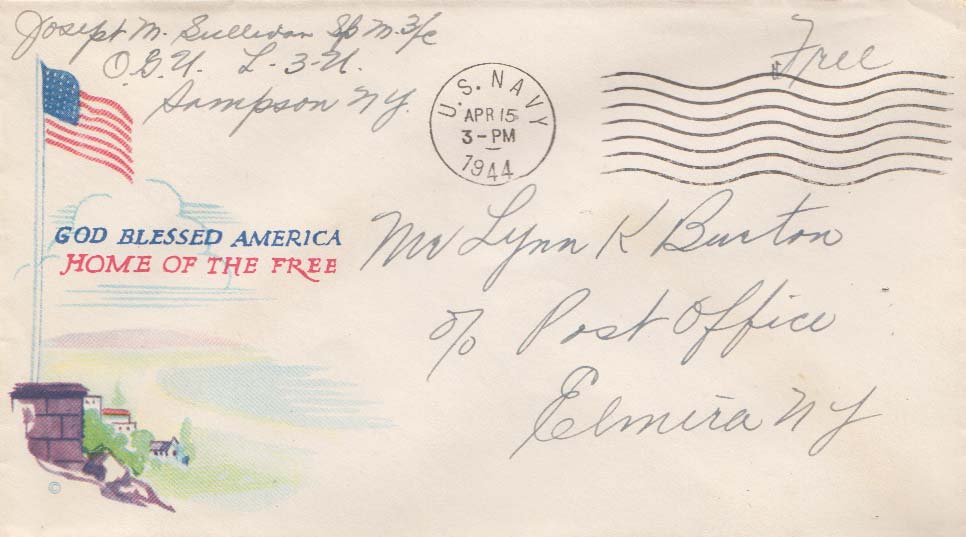 Joseph M. Sullivan Sp M. 3/c
O.G.U. L-3-U.
Sampson NY.
U.S. NAVY
APR 15
3-PM
1944
Free
GOD BLESSED AMERICA
HOME OF THE FREE
Mr Lynn K Burton
c/o Post Office
Elmira NY
©